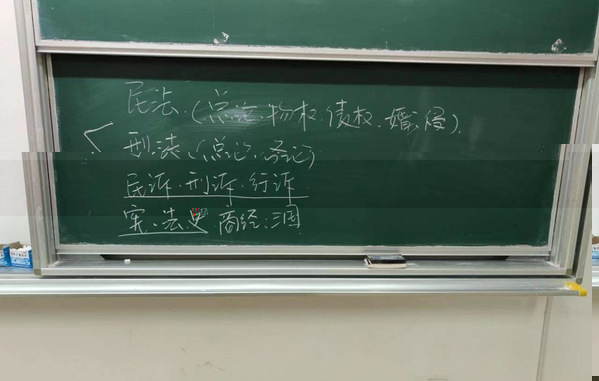 民法.(总论.物权.债权.婚.侵).
刑法.(总论.各论)
民诉.刑诉.行诉
宪.法史 商经.三国